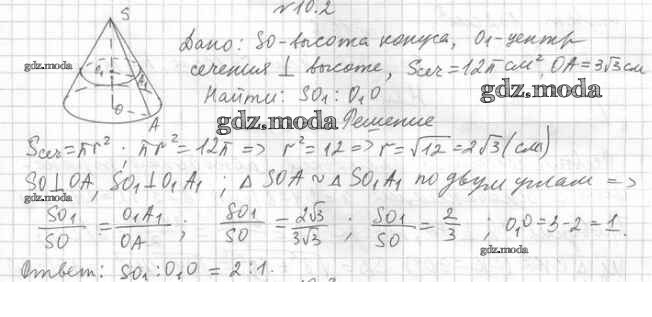 N 10.2
S
Дано: SO-высота конуса, O₁-центр
сечения ⊥ высоте, Sсеч=12π см², OA=3√3 см
gdz.moda
O₁ A₁
Найти: SO₁ : O₁O
gdz.moda
O
A
gdz.moda Решение
Sсеч=πr²; πr²=12π => r²=12 => r=√12=2√3(см)
SO⊥OA, SO₁⊥O₁A₁; △SOA ~ △SO₁A₁ по двум углам =>
gdz.moda
SO₁/SO = O₁A₁/OA; SO₁/SO = 2√3/3√3; SO₁/SO = 2/3; O₁O=3-2=1.
gdz.moda
Ответ: SO₁:O₁O = 2:1.